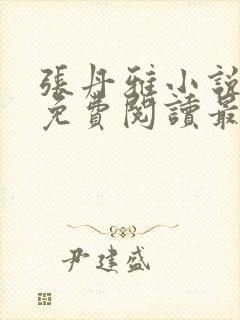 張丹雅小說
免費閱讀最
尹建盛